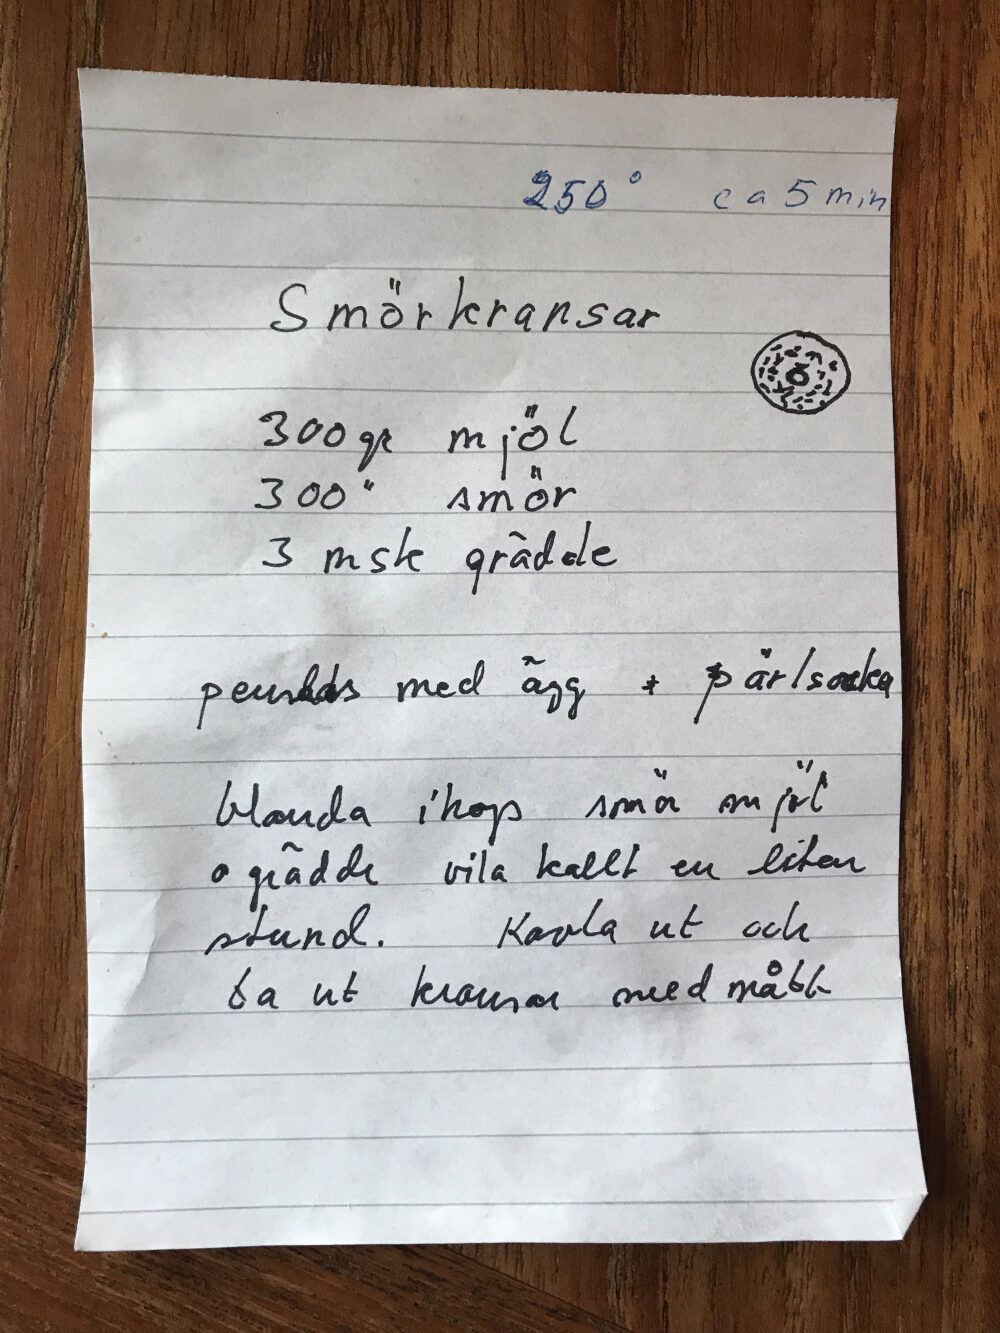 250° ca 5 min
Smörkransar
300 gr mjöl
300 " smör
3 msk grädde
penslas med ägg + pärlsocke
blanda ihop smör mjöl
o grädde vila kallt en liten
stund. Kavla ut och
ta ut kransar med mått